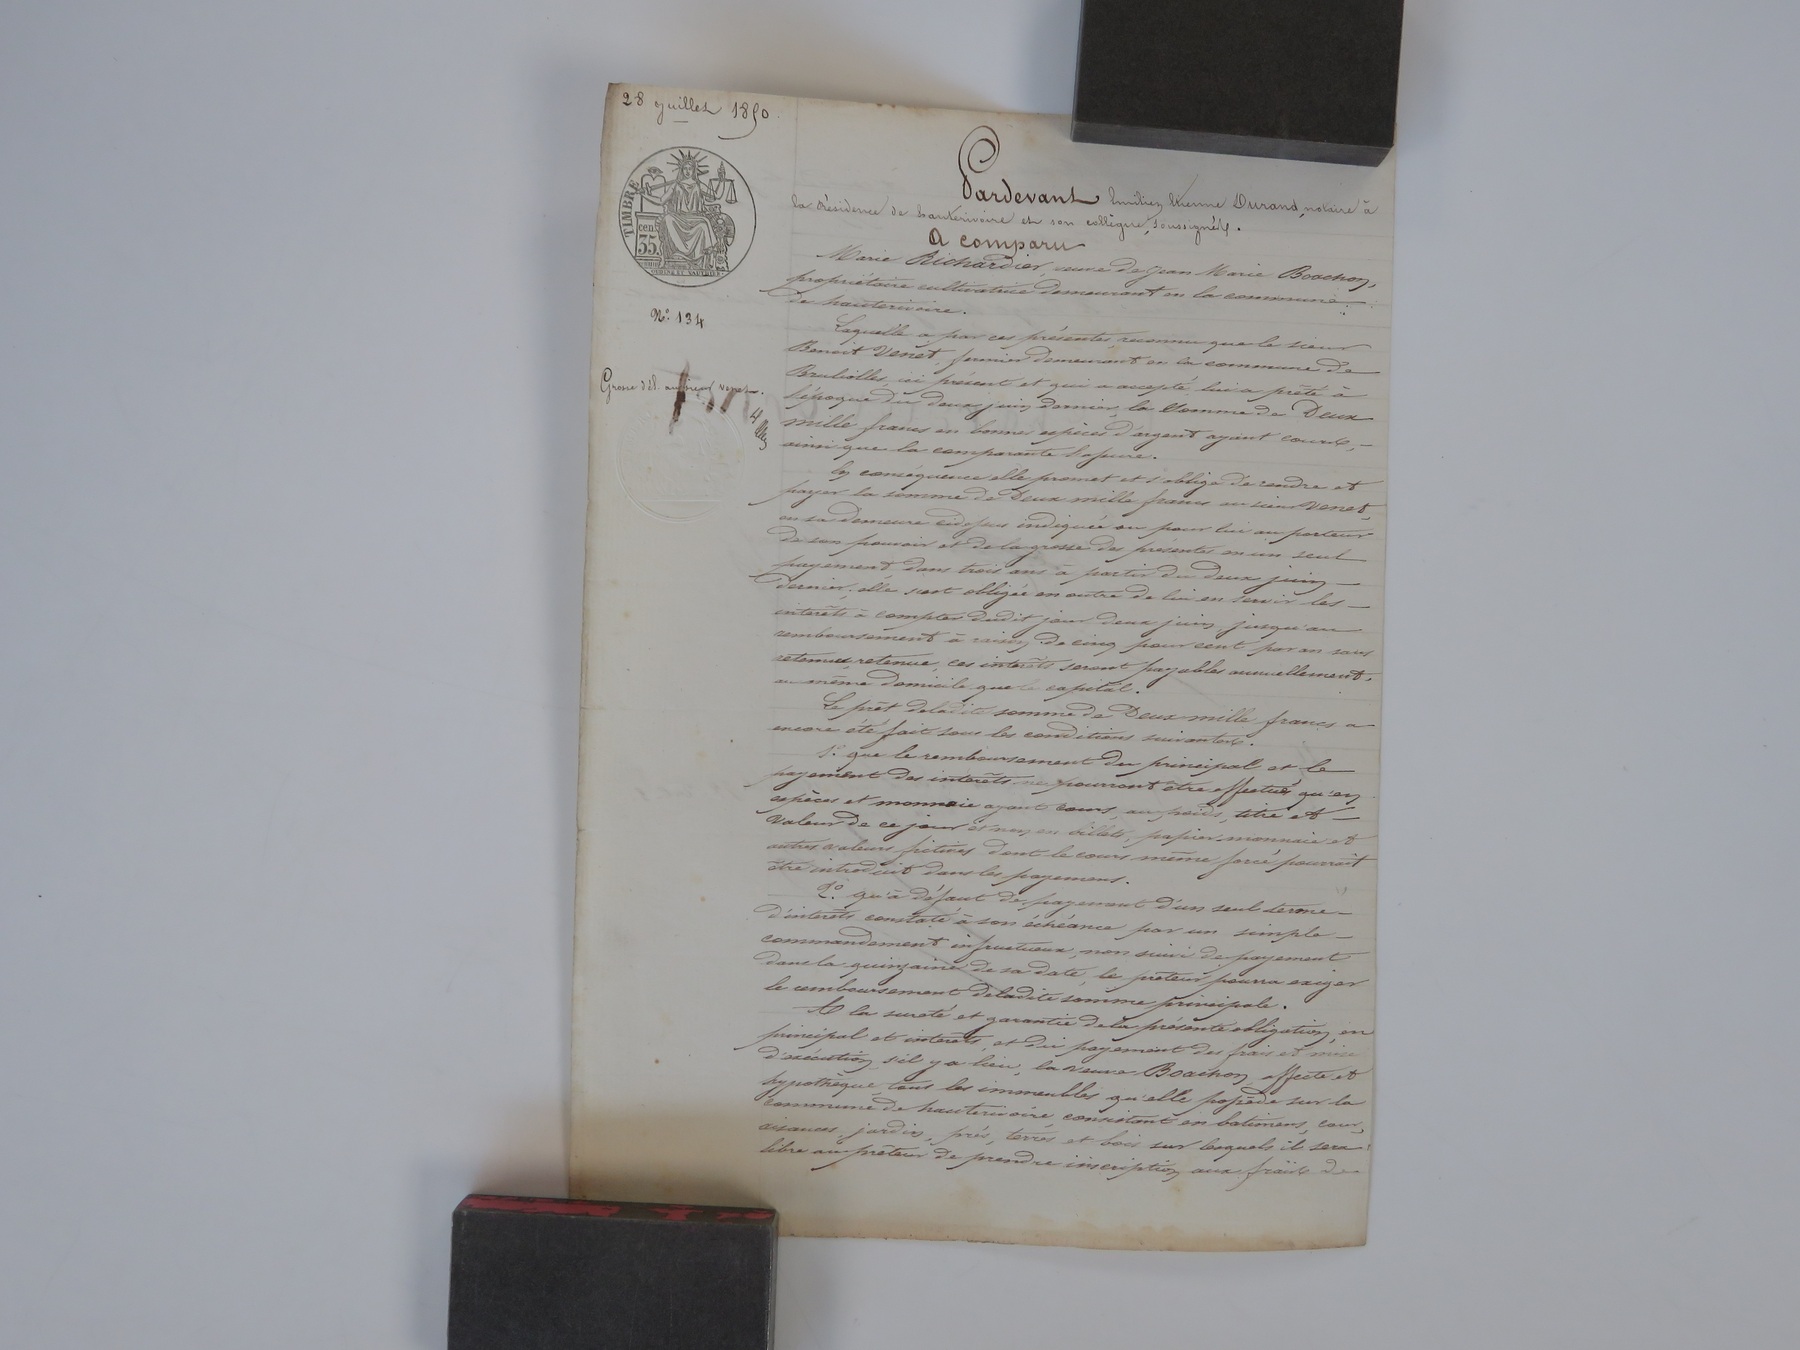 28 Juillet 1850.
TIMBRE
cen.
35
N° 134
Grosse dél. au sieur Venet.
Pardevant Emilien Etienne Durand, notaire à
la résidence de hauterivoire et son collègue, soussignés.
A comparu
Marie Richardier, veuve de Jean Marie Boachon,
propriétaire cultivatrice demeurant en la commune
de hauterivoire.
Laquelle a par ces présentes reconnu que le sieur
Benoit Venet, fermier demeurant en la commune de
Brulliolles, ici présent et qui a accepté, lui a prêté à
l'époque du deux juin dernier, la somme de Deux
mille francs en bonnes espèces d'argent ayant cours, —
ainsi que la comparante l'assure.
En conséquence elle promet et s'oblige de rendre et
payer la somme de Deux mille francs au sieur Venet,
en sa demeure cidessus indiquée ou pour lui au porteur
de son pouvoir et de la grosse des présentes en un seul
payement dans trois ans à partir du deux juin —
dernier; elle sera obligée en outre de lui en servir les —
intérêts à compter dudit jour deux juin, jusqu'au
remboursement à raison de cinq pour cent par an sans
retenue, ces intérêts seront payables annuellement,
au même domicile que le capital.
Le prêt deladite somme de Deux mille francs a
encore été fait sous les conditions suivantes.
1° que le remboursement du principal et le
payement des intérêts ne pourront être effectués qu'en
espèces et monnaie ayant cours, au poids, titre et —
valeur de ce jour et non en billets, papier-monnaie et
autres valeurs fictives dont le cours même forcé pourrait
être introduit dans les payemens.
2° qu'à défaut de payement d'un seul terme —
d'intérêts constaté à son échéance par un simple —
commandement infructueux, non suivi de payement
dans la quinzaine de sa date, le prêteur pourra exiger
le remboursement deladite somme principale.
A la sureté et garantie de la présente obligation, en
principal et intérêts, et du payement des frais et mise
d'exécution s'il y a lieu, la veuve Boachon, affecte et
hypothèque tous les immeubles qu'elle possède sur la
commune de hauterivoire, consistant en batimens, cour,
aisances, jardin, prés, terres et bois sur lesquels il sera
libre au prêteur de prendre inscription aux frais de